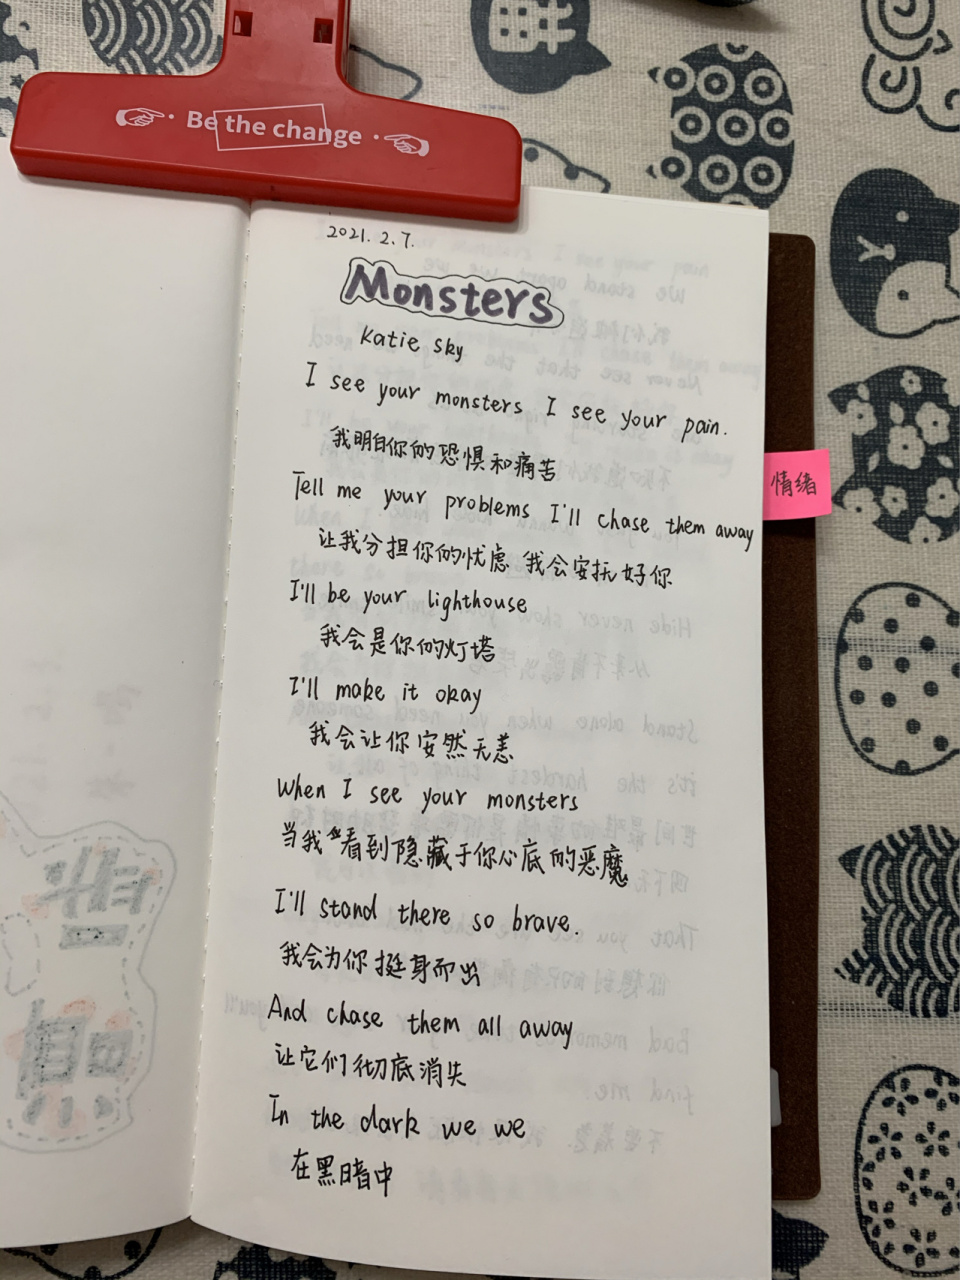 Be the change
2021.2.7.
Monsters
Katie sky
I see your monsters I see your pain.
我明白你的恐惧和痛苦
Tell me your problems I'll chase them away
让我分担你的忧虑 我会安抚好你
I'll be your lighthouse
我会是你的灯塔
I'll make it okay
我会让你安然无恙
When I see your monsters
当我看到隐藏于你心底的恶魔
I'll stand there so brave.
我会为你挺身而出
And chase them all away
让它们彻底消失
In the dark we we
在黑暗中
情绪